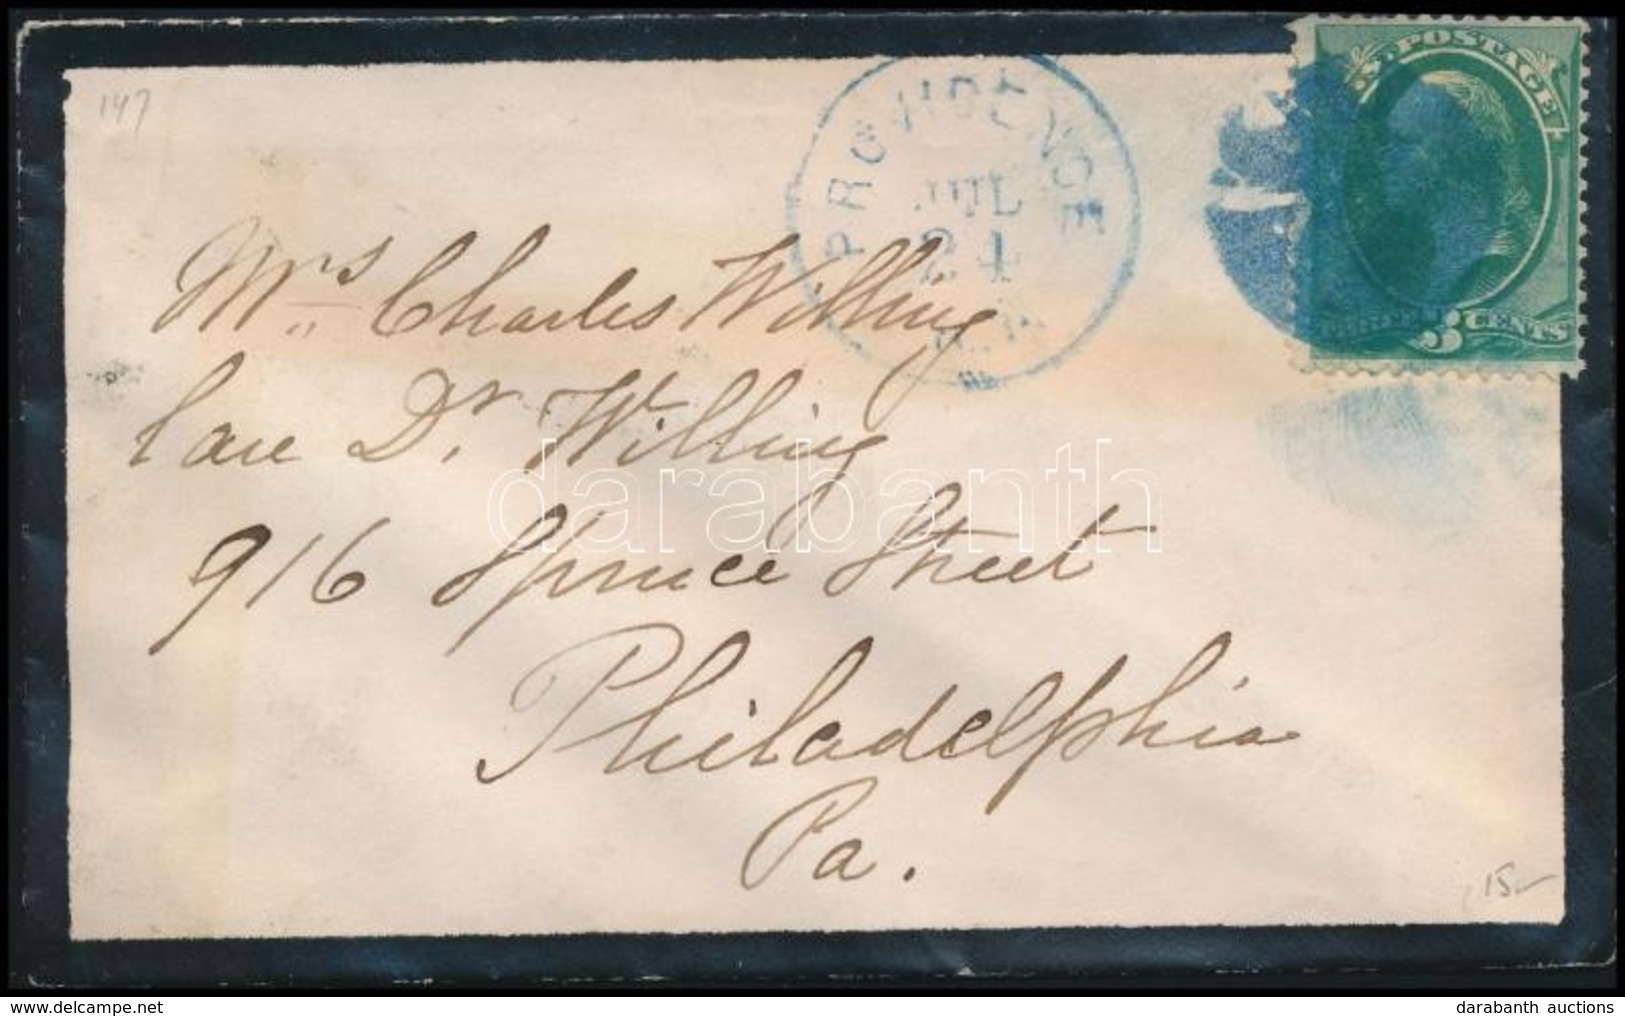 147
PROVIDENCE
JUL
24
R.I.
U.S. POSTAGE
3 CENTS
Mrs Charles Willing
Care Dr. Willing
916 Spruce Street
Philadelphia
Pa.
15
darabanth
delcampe.net
darabanth auctions